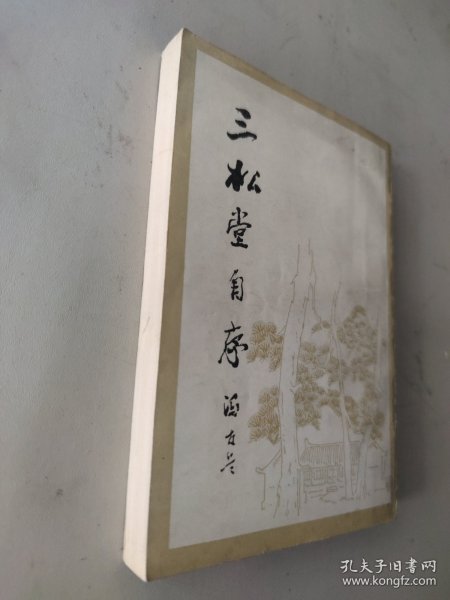 三松堂自序
孔夫子旧书网
www.kongfz.com